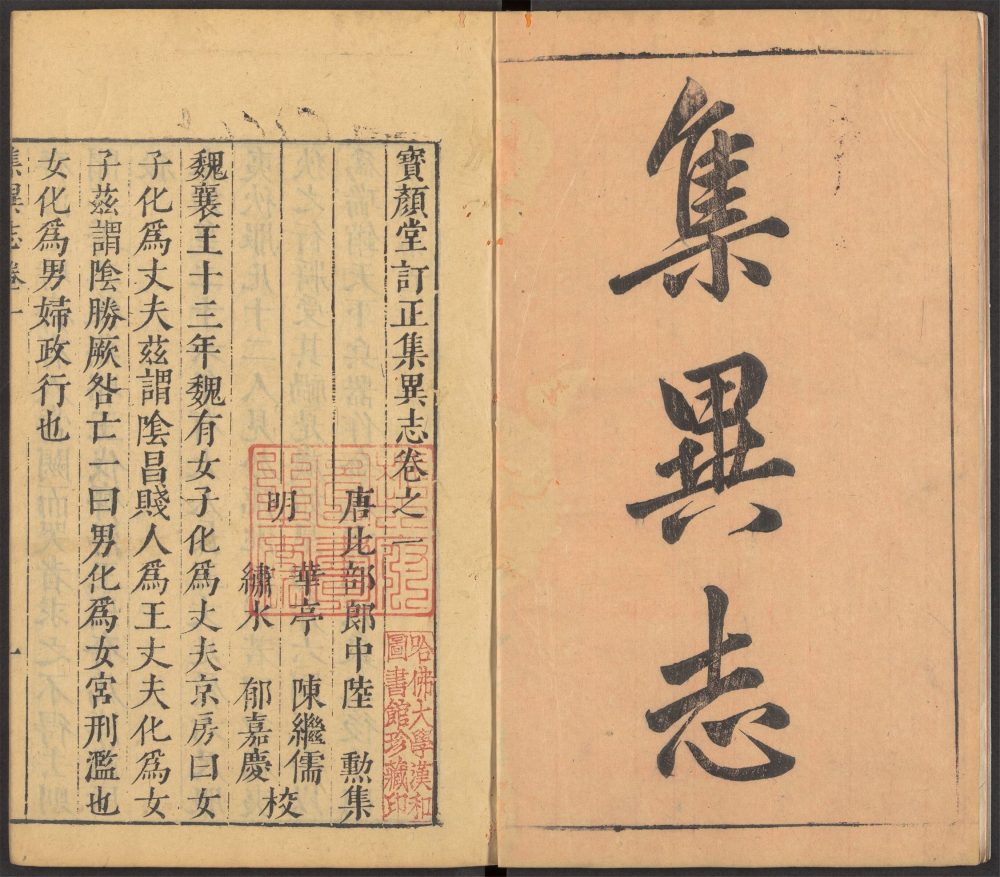 集異志
寶顏堂訂正集異志卷之一
唐比部郎中陸勲集
明
華亭陳繼儒
繡水郁嘉慶校
魏襄王十三年魏有女子化爲丈夫京房曰女
子化爲丈夫茲謂陰昌賤人爲王丈夫化爲女
子茲謂陰勝厥咎亡一曰男化爲女宮刑濫也
女化爲男婦政行也
集異志卷一
一
哈佛大學漢和
圖書館珍藏印